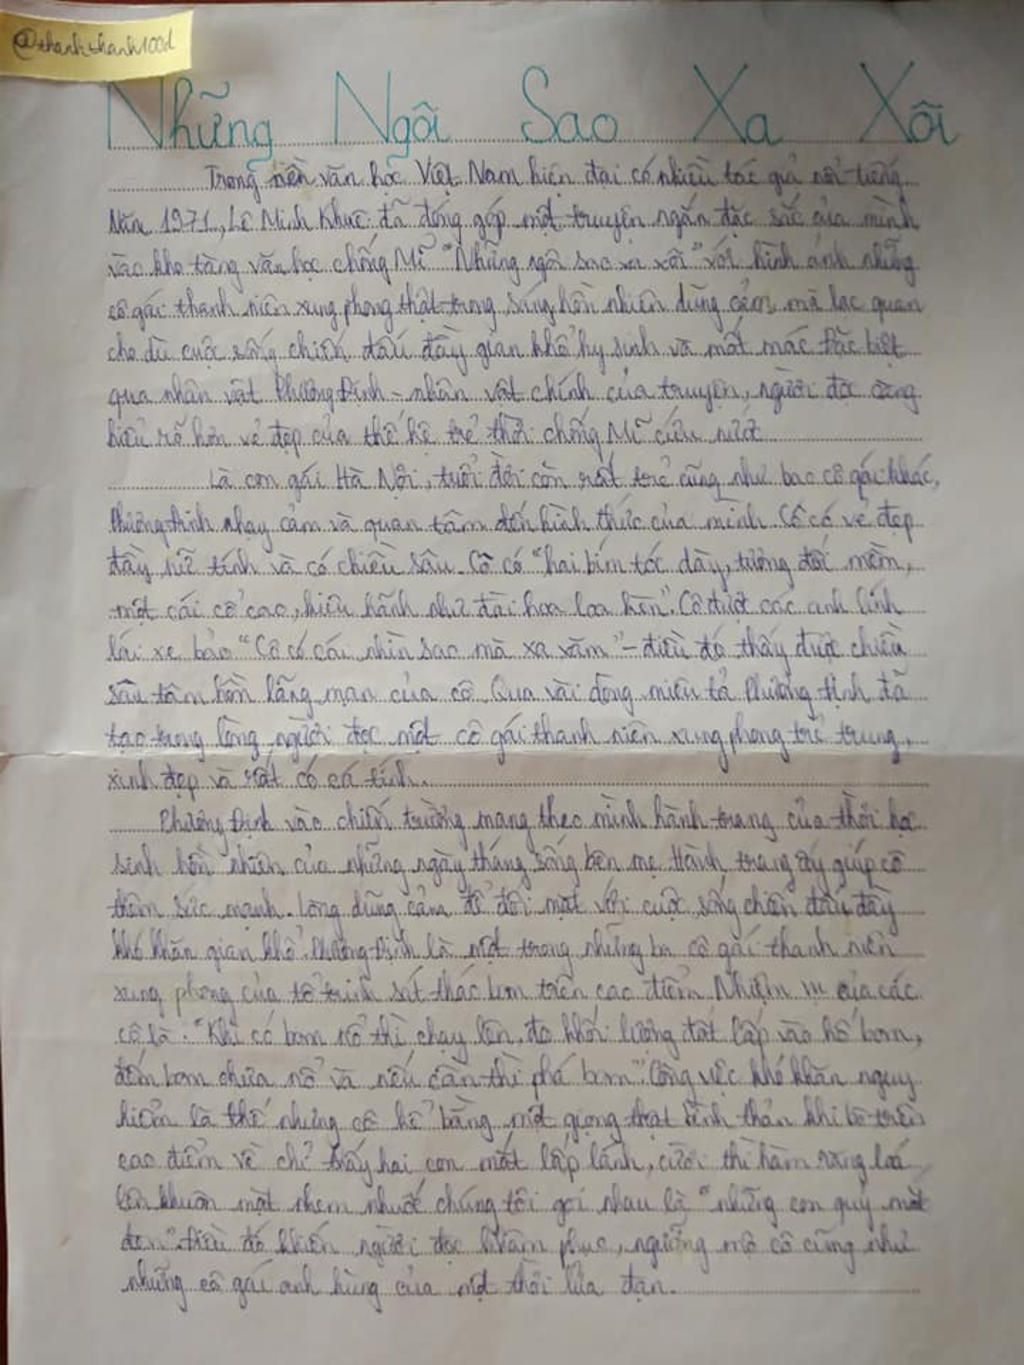 @thanhthanh100d
Những Ngôi Sao Xa Xôi
Trong nền văn học Việt Nam hiện đại có nhiều tác giả nổi tiếng
Năm 1971, Lê Minh Khuê đã đóng góp một truyện ngắn đặc sắc của mình
vào kho tàng văn học chống Mĩ "Những ngôi sao xa xôi" với hình ảnh những
cô gái thanh niên xung phong thật trong sáng, hồn nhiên dũng cảm mà lạc quan
cho dù cuộc sống chiến đấu đầy gian khổ hy sinh và mất mác Đặc biệt
qua nhân vật Phương Định - nhân vật chính của truyện, người đọc càng
hiểu rõ hơn vẻ đẹp của thế hệ trẻ thời chống Mĩ cứu nước
Là con gái Hà Nội, tuổi đời còn rất trẻ cũng như bao cô gái khác,
Phương Định nhạy cảm và quan tâm đến hình thức của mình. Cô có vẻ đẹp
đầy nữ tính và có chiều sâu. Cô có "hai bím tóc dày, tương đối mềm,
một cái cổ cao, kiêu hãnh như đài hoa loa kèn". Cô được các anh lính
lái xe bảo "Cô có cái nhìn sao mà xa xăm" - điều đó thấy được chiều
sâu tâm hồn lãng mạn của cô. Qua vài dòng miêu tả Phương Định đã
tạo trong lòng người đọc một cô gái thanh niên xung phong trẻ trung,
xinh đẹp và rất có cá tính.
Phương Định vào chiến trường mang theo mình hành trang của thời học
sinh hồn nhiên của những ngày tháng sống bên mẹ. Hành trang ấy giúp cô
thêm sức mạnh. Lòng dũng cảm để đối mặt với cuộc sống chiến đấu đầy
khó khăn gian khổ. Phương Định là một trong những ba cô gái thanh niên
xung phong của tổ trinh sát thác bom trên cao điểm Nhiệm vụ của các
cô là: "Khi có bom nổ thì chạy lên, đo khối lượng đất lấp vào hố bom,
đếm bom chưa nổ và nếu cần thì phá bom". Công việc khó khăn nguy
hiểm là thế nhưng cô kể bằng một giọng thật bình thản khi bò trên
cao điểm về chỉ thấy hai con mắt lấp lánh, cười thì hàm răng loá
lên khuôn mặt nhem nhuốc chúng tôi gọi nhau là "những con quỷ mắt
đen". Điều đó khiến người đọc khâm phục, ngưỡng mộ cô cũng như
những cô gái anh hùng của một thời lửa đạn.